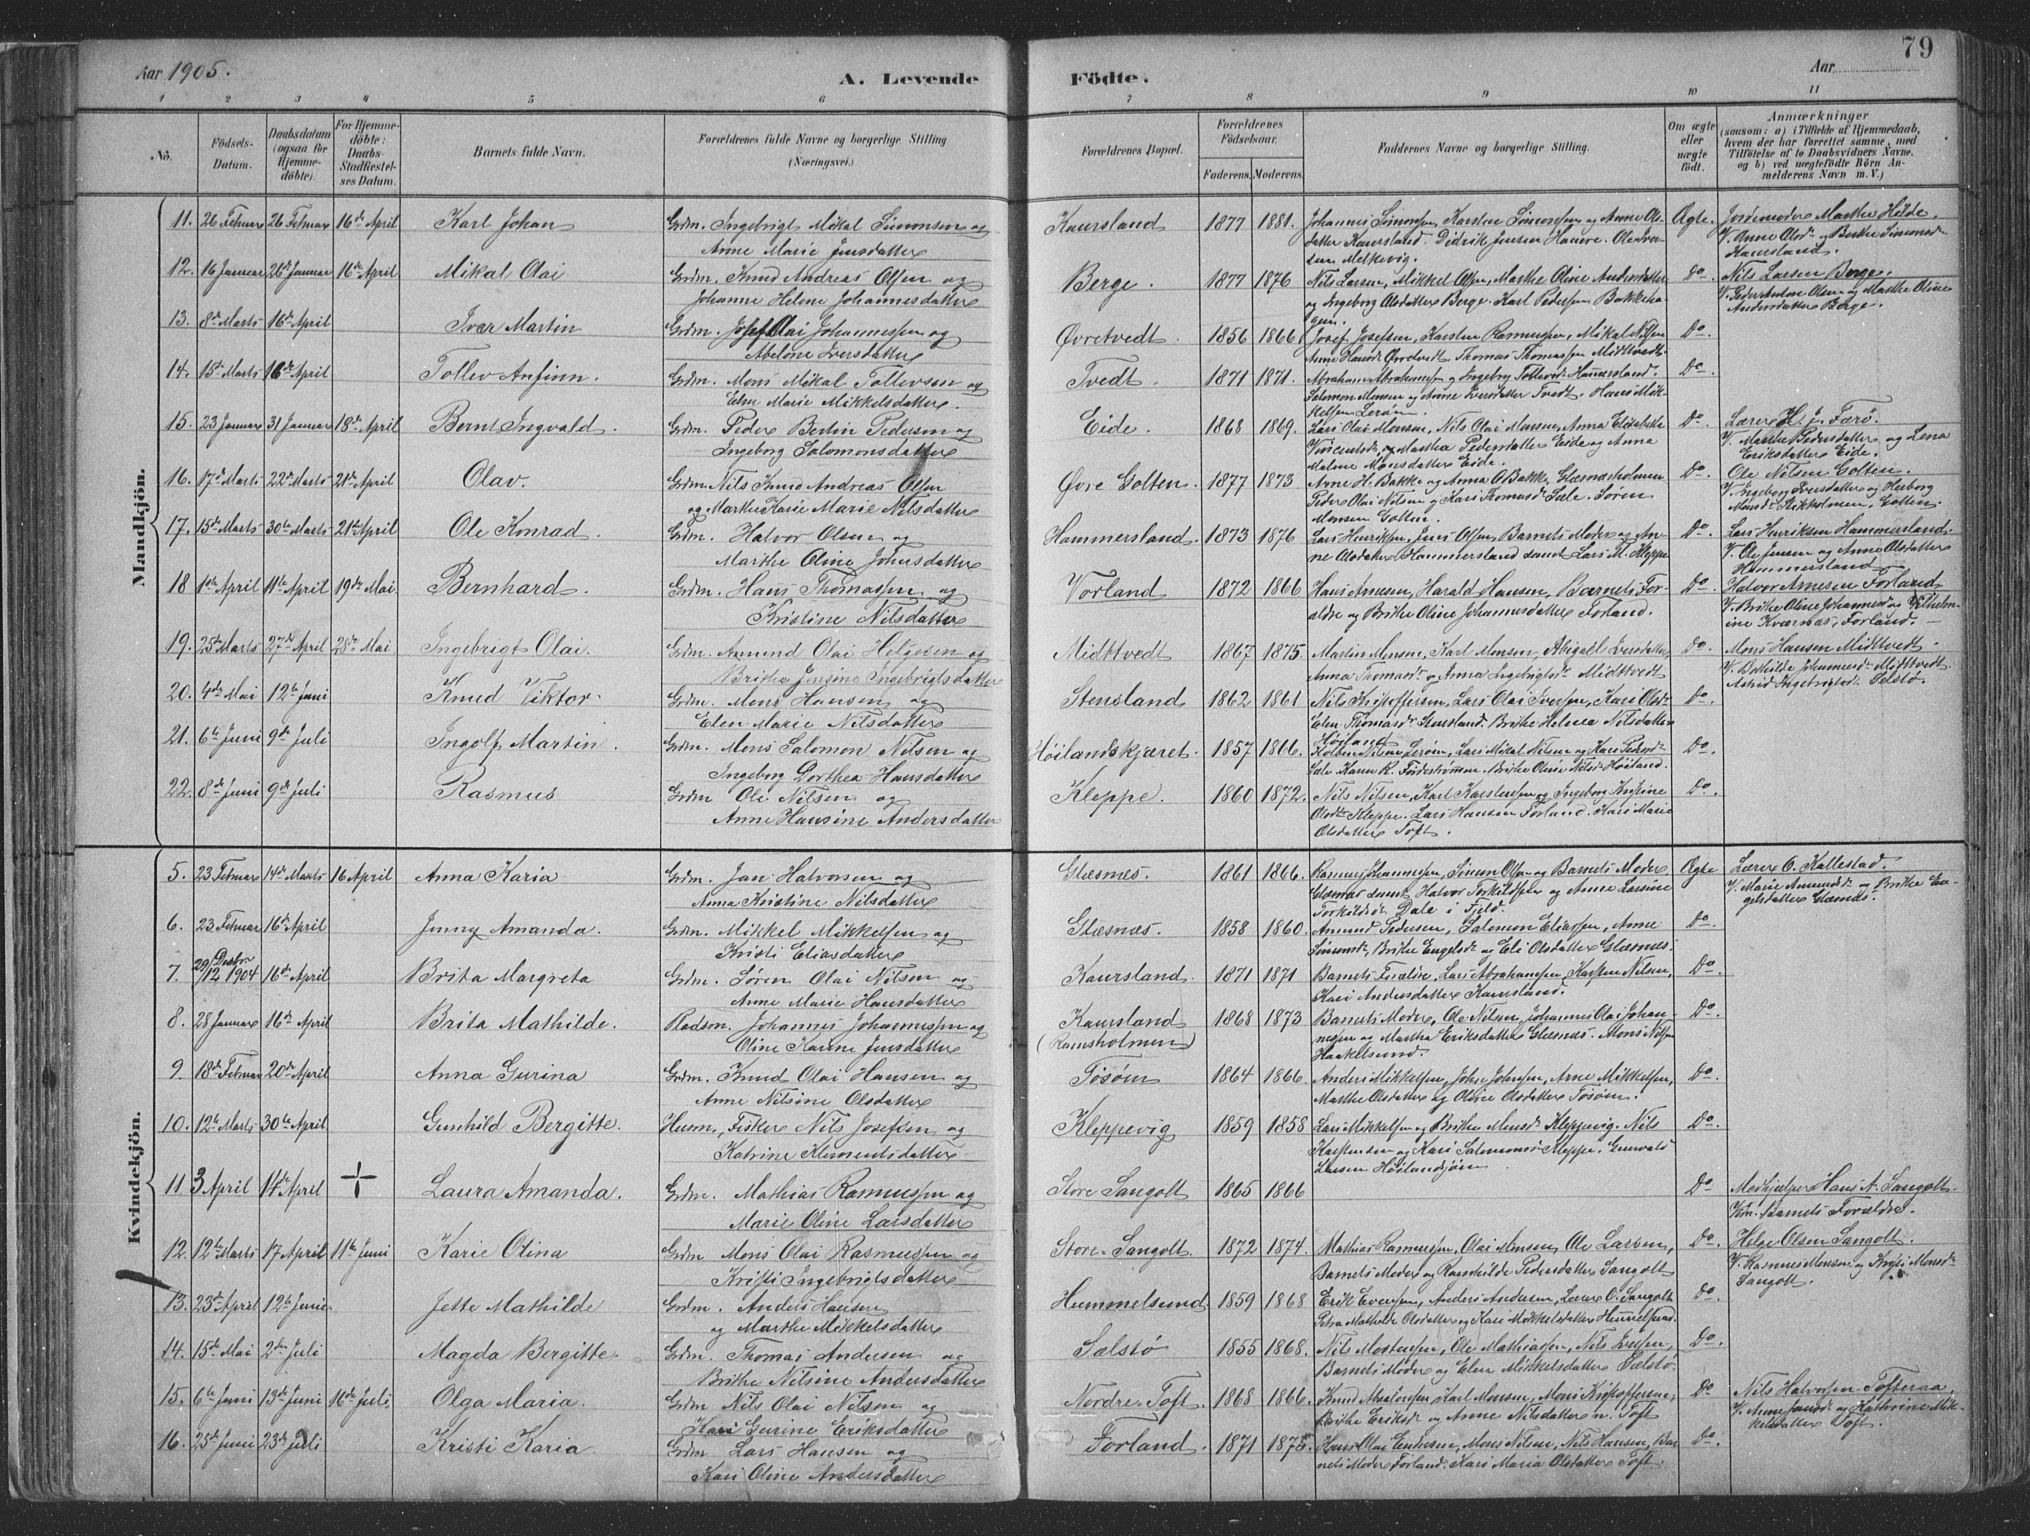 Aar 1905.
A. Levende Födte.
79
Aar
1 2 3 4 5 6 7 8 9 10 11
No.
Födsels-Datum.
Daabsdatum (ogsaa for Hjemmedöbte).
For Hjemmedöbte: Daabs-Stadfæstelses Datum.
Barnets fulde Navn.
Forældrenes fulde Navne og borgerlige Stilling (Næringsvei.)
Forældrenes Bopæl.
Forældrenes Födselsaar.
Faderens. Moderens.
Faddernes Navne og borgerlige Stilling.
Om ægte eller uægte födt.
Anmærkninger
(saasom: a) i Tilfælde af Hjemmedaab, hvem der har forrettet samme, med Tilföielse af to Daabsvidners Navne, og b) ved uægtefödte Börn Anmelderens Navn m. V.)
Mandkjön.
11. 26 Februar 26 Februar 16de April Karl Johan Grdm. Ingebrigt Mikal Simonsen og
Anne Marie Jensdatter
Kaursland 1877 1881. Johannes Simonsen, Karsten Simonsen og Anne Olsdatter Kaursland. Didrik Jensen Hamre. Ole Melkevig. Ægte. Jordemoder Marthe Hilde.
V. Anne Olsdr og Berthe Simonsdr
Kaursland
12. 16 Januar 26de Januar 16de April Mikal Olai Grdm. Knud Andreas Olsen og
Johanne Helene Johannesdatter
Berge. 1877 1876 Nils Larsen, Mikkel Olsen, Marthe Oline Andersdatter
og Ingeborg Olsdatter Berge. Karl Pedersen Do. Nils Larsen Berge.
V. Peder Anton Olsen og Marthe Oline
Andersdatter Berge.
13. 8de Marts 16de April Ivar Martin Grdm. Josef Olai Johannessen og
Abelone Iversdatter
Øvretvedt. 1856 1866 Josef Josefsen, Karsten Rasmussen, Mikal Nilsen
Anne Hansdr Øvretvedt Thomas Thomassen Midttvedt. Do.
14. 15de Marts 16de April Tollev Anfinn. Grdm. Mons Mikal Tollevsen og
Elen Marie Mikkelsdatter.
Tvedt. 1871 1871. Abraham Abrahamsen og Ingeborg Tollevsdr Hammersland.
Salomon Monsen og Anne Iversdatter Tvedt. Hans Mikkelsen Lerøen Do.
15. 23 Januar 31 Januar 18de April Bernt Ingvald. Grdm. Peder Bertin Pedersen og
Ingeborg Salomonsdatter
Eide. 1868 1869. Lars Olai Monsen, Nils Olai Monsen, Anna Elisabeth
Vincentsdr og Martha Pedersdatter Eide og Anna
Malene Monsdatter Eide. Do. Lærer H. J. Farø.
V. Marthe Pedersdatter og Lena
Eriksdatter Eide.
16. 17de Marts 22de Marts 21de April Olav. Grdm. Nils Knud Andreas Olsen
og Marthe Karie Marie Nilsdatter
Øvre Golten. 1877 1873 Arne H. Bakke og Anna O. Bakke, Glæsnæsholmen
Peder Olai Nilsen og Kari Thomasdr Sæle. Søren
Monsen Golten. Do. Ole Nilsen Golten.
V. Ingeborg Iversdatter og Herborg
Golten.
17. 15de Marts 30te Marts 21de April Ole Konrad Grdm. Halvor Olsen og
Marthe Oline Johnsdatter
Hammersland. 1873 1876 Lars Henriksen, Jens Olsen, Barnets Moder og Anne Olsdatter Hammersland samt Lars M. Kleppe Do. Lars Henriksen Hammersland.
V. Ole Jensen og Anne Olsdatter
Hammersland
18 1ste April 11te April 19de Mai Bernhard. Grdm. Hans Thomassen og
Kristine Nilsdatter
Vorland 1872 1866 Hans Arnesen, Harald Hansen, Barnets Forældre og Brithe Oline Johannesdatter Forland. Do. Halvor Arnesen Forland
V. Brithe Oline Johannesdr og Vilhelmine Kværnes, Forland.
19. 25de Marts 27de April 28de Mai Ingebrigt Olai. Grdm. Amund Olai Helgesen og
Brithe Jensine Ingebrigtsdatter
Midttvedt 1867 1875. Martin Monsen, Karl Monsen, Abigael Iversdatter,
Anna Thomasdr og Anna Ingebrigtsdr Midttvedt Do. Mons Hansen Midttvedt.
V. Bothilde Johannesdr Midttvedt
Astrid Ingebrigtsdr Selstø.
20. 4de Mai 12te Juni Knud Viktor. Grdm. Mons Hansen og
Elen Marie Nilsdatter
Stensland 1862 1861 Nils Kristoffersen, Lars Olai Iversen, Kari Olsdr
Elen Thomasdr Stensland. Brithe Helene Nilsdatter
Høiland Do.
21. 6te Juni 9de Juli Ingolf Martin. Grdm. Mons Salomon Nilsen og
Ingeborg Dorthea Hansdatter
Høilandskjæret. 1857 1866. Nilsen Lerøen, Lars Mikal Nilsen og Kari Pedersdr
Sæle. Karen K. Brithe Oline Nilsdr Høiland. Do.
22. 8de Juni 9de Juli Rasmus Grdm Ole Nilsen og
Anne Hansine Andersdatter
Kleppe. 1860 1872. Nils Nilsen, Karl Karstensen og Ingeborg Kristine
Olsdr Kleppe. Lars Hansen Forland. Kari Marie
Olsdatter Toft. Do.
Kvindekjön.
5. 23 Februar 14de Marts 16 April Anna Karia Grdm. Jan Halvorsen og
Anna Kristine Nilsdatter
Glæsnæs. 1861 1866. Rasmus Johannessen, Simon Olsen og Barnets Moder
Glæsnæs samt Halvor Torkildsen og Anne Larsine
Torkildsdr Dale i Fjeld. Ægte Lærer O. Kallestad.
V. Marie Amundsdr og Brithe Engelsdatter Glæsnæs.
6. 23 Februar 16de April Jenny Amanda. Grdm. Mikkel Mikkelsen og
Kristi Eliasdatter
Glæsnæs. 1858 1860. Amund Pedersen, Salomon Eliassen, Anne
Simonsdr, Brithe Engelsdr og Eli Olsdatter Glæsnæs. Do.
7. 29/12 Decbr. 1904 16de April Brita Margreta Grdm. Søren Olai Nilsen og
Anne Marie Hansdatter
Kaursland 1871 1871 Barnets Forældre, Lars Abrahamsen, Karsten Nilsen,
Kari Andersdatter Kaursland. Do.
8. 28 Januar 16de April Brita Mathilde. Radsm. Johannes Johannessen og
Oline Karine Jensdatter
Kaursland
(Ramsholmen) 1868 1873 Barnets Moder, Ole Nilsen, Johannes Olai Johannesen og Martha Eriksdatter Glæsnæs. Mons Nilsen
Haakelsund. Do.
9. 18de Februar 20de April Anna Gurina Grdm. Knud Olai Hansen og
Anne Nilsine Olsdatter
Tøsøen 1864 1866. Anders Mikkelsen, John Johnsen, Arne Mikkelsen,
Marthe Olsdatter og Oline Olsdatter Tøsøen. Do.
10. 12te Marts 30te April Gunhild Bergitte. Husm., Fisker Nils Josefsen og
Katrine Klementsdatter
Kleppevig 1859 1858 Lars Mikkelsen og Brithe Monsdr Kleppevig. Nils
Kaspersen og Kari Salomonsdr Kleppe, Gunvald
Larsen Høilandsjøen Do.
11. 3 April 14de April Laura Amanda. Grdm. Mathias Rasmussen og
Marie Oline Larsdatter
Store Sangolt 1865 1866 Do Medhjælper Hans A. Sangolt
Vdn. Barnets Forældre.
12. 12te Marts 17 April 11te Juni Karie Olina Grdm. Mons Olai Rasmussen og
Kristi Ingebrigtsdatter
Store-Sangolt. 1872 1874. Mathias Rasmussen, Olai Monsen, Ole Larsen,
Barnets Moder og Ranshilde Pedersdatter Sangolt Do. Helge Olsen Sangolt.
V. Rasmus Monsen og Monsdr
Sangolt.
13. 23de April 12te Juni Jette Mathilde Grdm. Anders Hansen
og Marthe Mikkelsdatter
Hummelsund 1859 1868 Erik Eversen, Anders Andersen, Lærer O. Sangolt
Petra Mathilde Olsdatter og Kari Mikkelsdatter Hummelsund. Do.
14. 15de Mai 2den Juli Magda Bergitte. Grdm. Thomas Andersen og
Brithe Nilsine Andersdatter
Sælstø 1855 1868. Nils Mortensen, Ole Mathiassen, Nils Iversen,
Barnets Moder og Elen Mikkelsdatter Sælstø. Do
15. 6te Juni 13de Juni 16de Juli Olga Maria. Grdm Nils Olai Nilsen og
Kari Gurine Eriksdatter
Nordre Toft 1868 1866. Knud Karl Monsen, Mons Kristoffersen,
Brithe Eriksdr og Anne Nilsdatter n. Toft Do Nils Halvorsen Tofteraa.
V. Anne Jansdr og Kathrine Mikkelsdatter Toft.
16. 25de Juni 23de Juli Kristi Karia Grdm. Lars Hansen og
Kari Oline Andersdatter
Forland. 1871 1875. Hans Olai Endresen, Mons Nilsen, Nils Hansen, Barnets Moder Forland. Kari Maria Olsdatter Toft. Do.